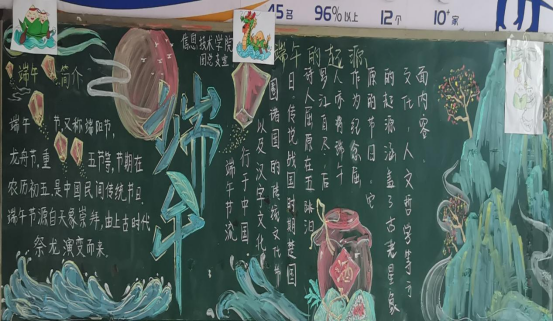 45名 96%以上 12个 10+家
信息技术学院
团总支宣
端午 简介
端午 节又称端阳节,
龙舟节,重 五节等,节期在
农历初五,是中国民间传统节日.
端午节源自天象崇拜,由上古时代
祭龙演变而来.
端午
端午的起源
端午节流
行于中国
以及汉字文化
圈诸国的传统文化节
日,传说战国时期楚国
诗人屈原在五 汨
罗江自尽,后
人亦将端午
作为纪念屈
原的节日,它
的起源涵盖了古老星象
文化、人文哲学等方
面内容.
福